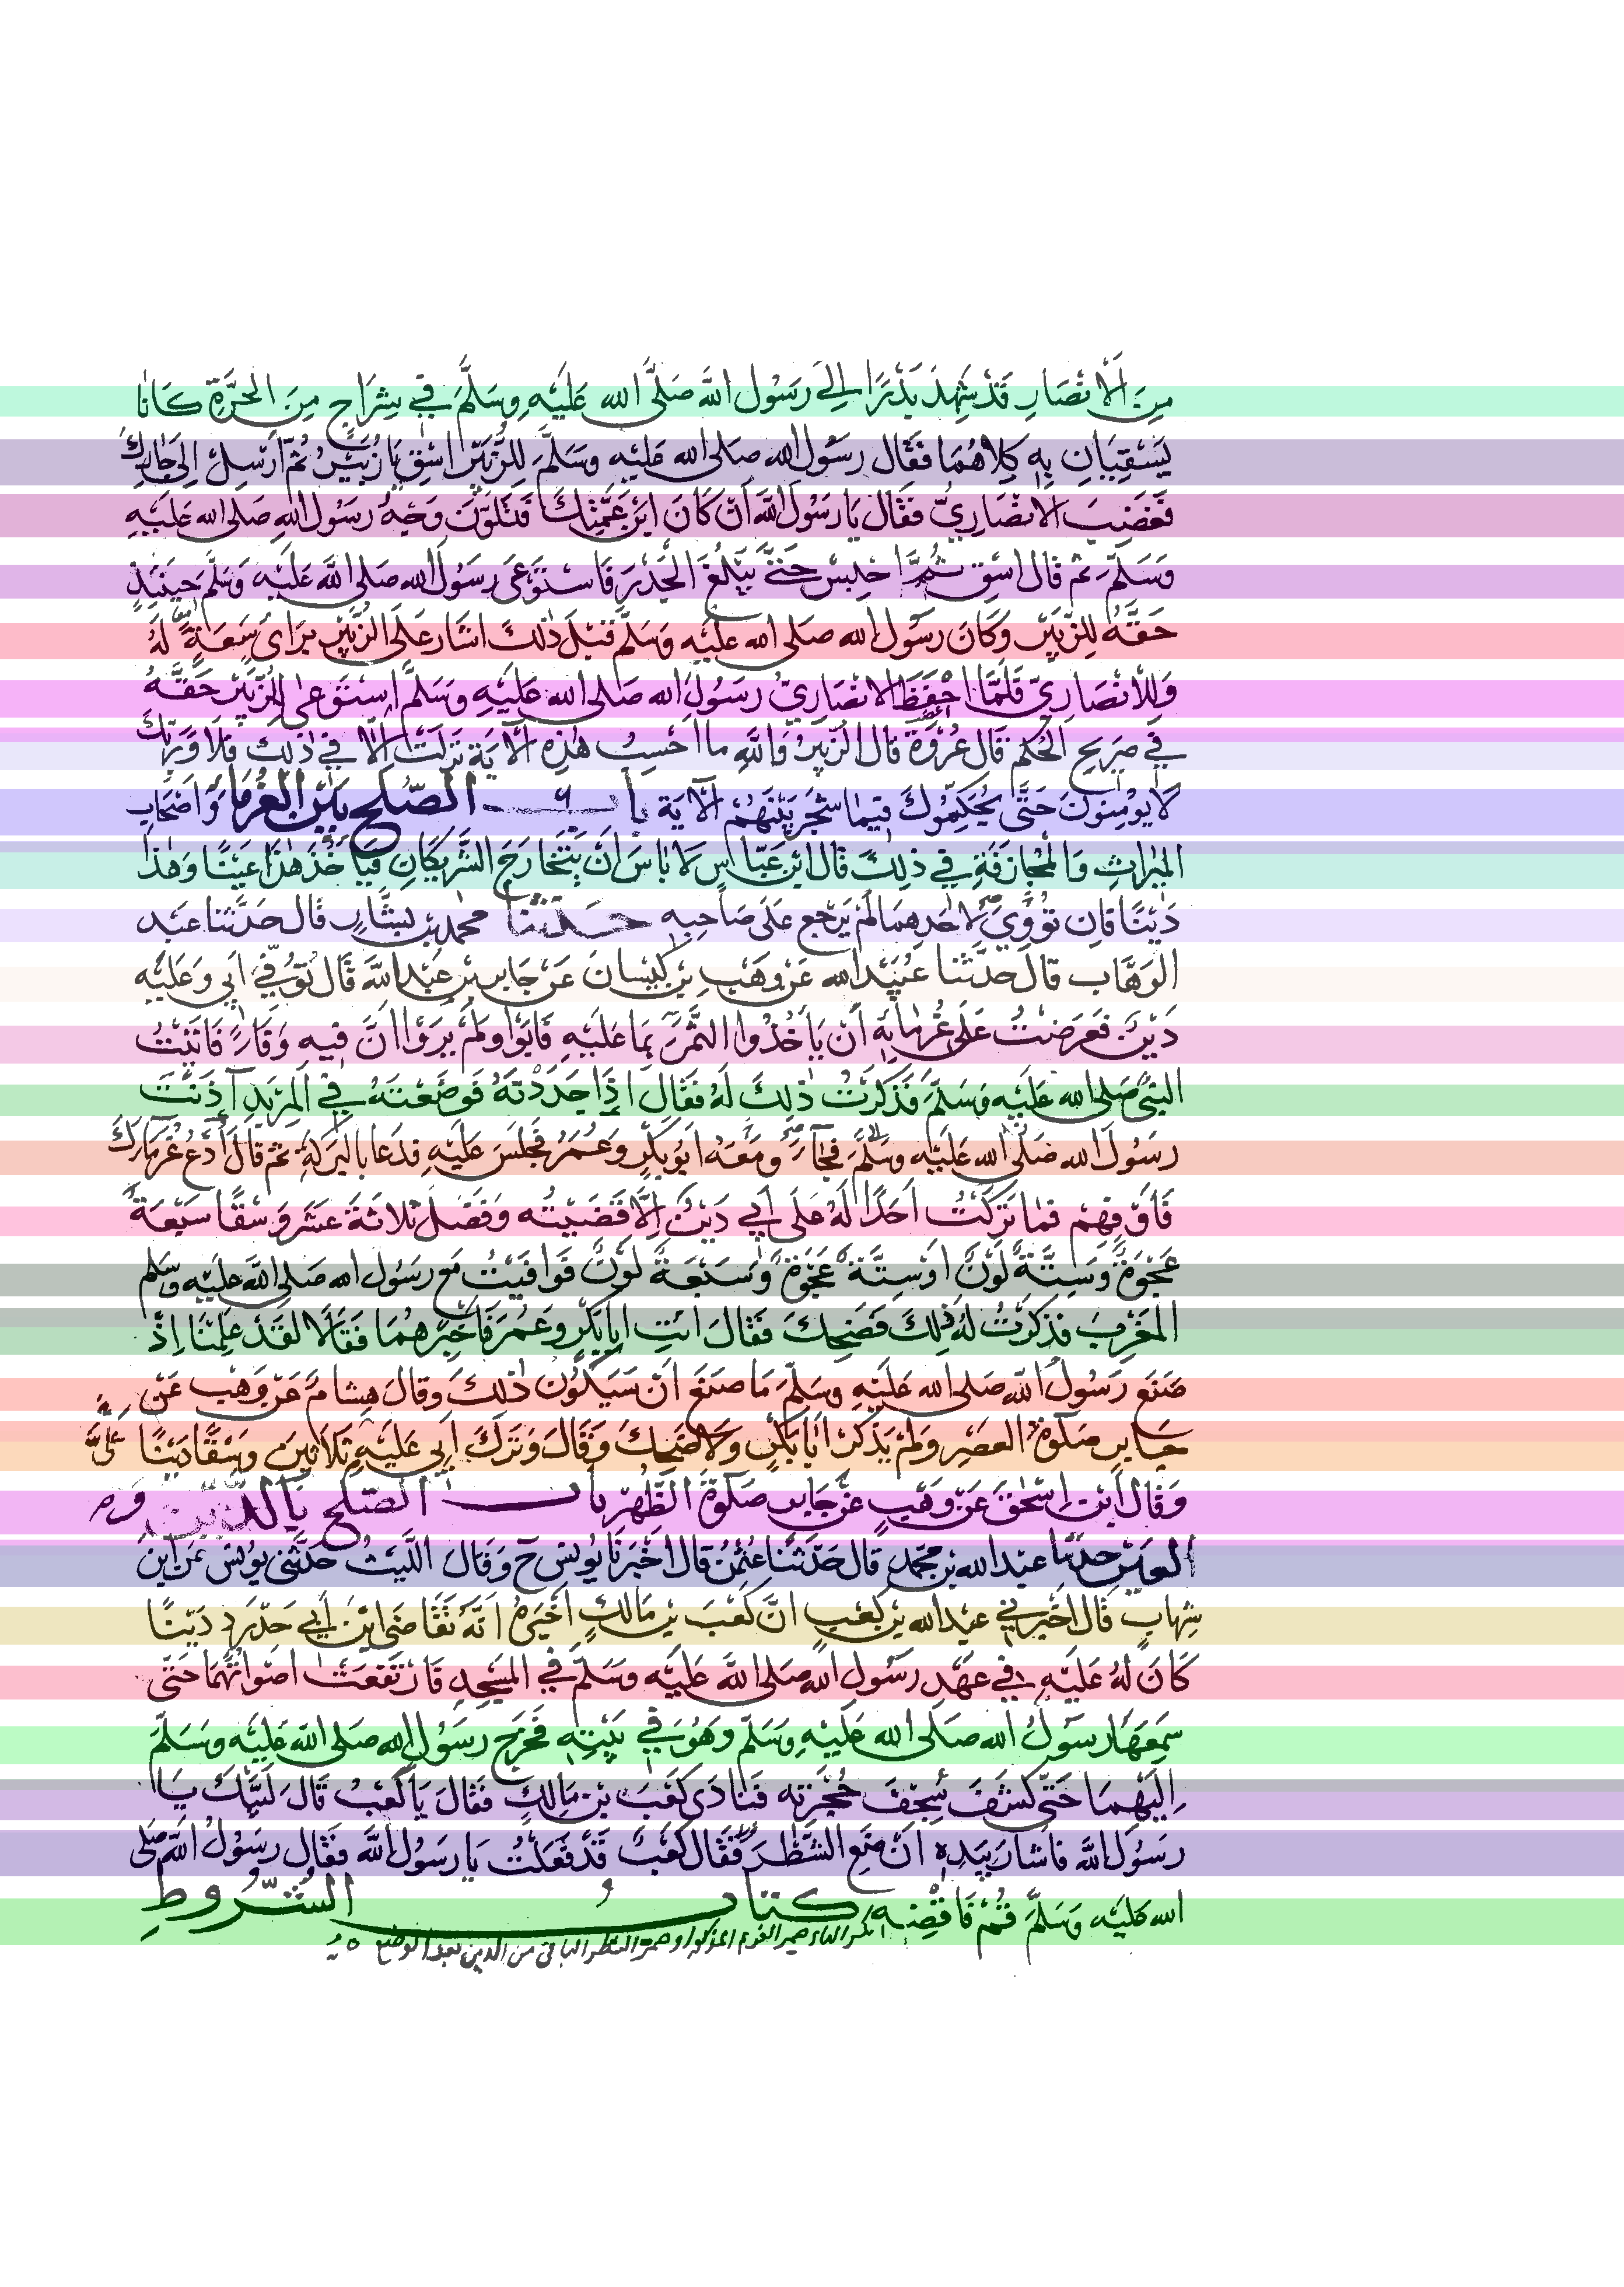 مِنَ الْاَنْصَارِ قَدْ شَهِدَ بَدْرًا اِلَى رَسُولِ اللهِ صَلَّى الله عَلَيْهِ وَسَلَّمَ فِي شِرَاجٍ مِنَ الْحَرَّةِ كَانَا
يَسْقِيَانِ بِهِ كِلَاهُمَا فَقَال رسُول الله صلى الله عليه وسَلَّمَ لِلزُّبَيْرِ اسْقِ يَا زُبَيْرُ ثُمَّ ارْسِلْ اِلَى جَارِكَ
فَغَضِبَ الانْصَارِيُّ فقَال يَا رسُولَ اللهِ آنْ كَانَ ابْنَ عَمَّتِكَ فَتَلَوَّنَ وَجْهُ رسُول اللهِ صلى الله عليهِ
وَسَلَّمَ ثم قال اسْقِ ثُمَّ احْبِسْ حَتَّى يَبْلُغَ الْجَدْرَ فَاسْتَوْعَى رسُولُ الله صلى اللهُ عَلَيْهِ وَسَلَّمَ حِينَئِذٍ
حَقَّهُ لِلزُّبَيْرِ وَكَانَ رسُول الله صلى الله عليه وسَلَّمَ قَبْلَ ذٰلِكَ اشَارَ عَلَى الزُّبَيْرِ بِرَايٍ سَعَةٍ لَهُ
وَلِلْاَنْصَارِيِّ فَلَمَّا احْفَظَ الانْصَارِيُّ رسُولَ الله صلى الله عَلَيْهِ وَسَلَّمَ اسْتَوْعَى لِلزُّبَيْرِ حَقَّهُ
فِي صَرِيحِ الْحُكْمِ قَالَ عُرْوَةُ قال الزُّبَيْرُ وَاللهِ ما احْسِبُ هٰذِهِ الْآيَةَ نَزَلَتْ اِلَّا فِي ذٰلِكَ فَلَا وَرَبِّكَ
لَا يُوْمِنُونَ حَتَّى يُحَكِّمُوكَ فِيمَا شَجَرَ بَيْنَهُمْ الْآيَة باب الصُّلْحِ بَيْنَ الْغُرَمَا وَاصْحَابِ
المِيرَاثِ وَالْمُجَازَفَةِ فِي ذٰلِكَ قَال ابْن عَبَّاسٍ لَا بَاسَ انْ يَتَخَارَجَ الشَّرِيكَانِ فَيَاخُذَ هٰذَا عَيْنًا وَهٰذَا
دَيْنًا فَاِن تَوِيَ لِاَحَدِهِمَا لَمْ يَرْجِع عَلَى صَاحِبِهِ حدثنا محمد بن بشَّارٍ قَال حَدَّثَنَا عَبْد
الوَهَّاب قَالَ حَدَّثَنا عُبَيْدُ الله عَنْ وَهْبِ بْنِ كَيْسَانَ عَنْ جَابِرِ بْنِ عَبْدِ اللهِ قَالَ تُوُفِّيَ اَبِي وَعَلَيْهِ
دَيْنٌ فَعَرَضْتُ عَلَى غُرمَائِهِ اَنْ يَاْخُذُوا التَّمْرَ بِمَا عَلَيْهِ فَابَوْا وَلَمْ يَرَوْا انَّ فِيهِ وَفَاءً فَاتَيْتُ
النَّبِيَّ صَلى الله عَلَيْهِ وَسَلَّمَ فَذَكَرْتُ ذٰلِكَ لَهُ فَقَال اِذَا جَدَدْتَهُ فَوَضَعْتَهُ فِي الْمِرْبَدِ آذَنْتَ
رسُولَ الله صَلَّى الله عَلَيْهِ وسَلَّمَ فَجَآءَ وَمَعَهُ ابُو بَكْرٍ وَعُمَرُ فَجَلَسَ عَلَيْهِ فدَعَا بِالْبَرَكَةِ ثم قَال ادْعُ غُرَمَاءَكَ
فَاَوْفِهِمْ فمَا تَرَكْتُ اَحَدًا لَهُ عَلَى اَبِي دَيْنٌ اِلَّا قَضَيْتُه وَفَضَلَ ثَلَاثَةَ عَشَرَ وَسْقًا سَبْعَةٌ
عَجْوَةٌ وَسِتَّةٌ لَوْنٌ اوْ سِتَّةٌ عَجْوَةٌ وَسَبْعَةٌ لَوْنٌ فَوَافَيْتُ مَعَ رسُول الله صَلى اللهُ عليه وسلم
المَغْرِبَ فذَكَرْتُ لَهُ ذٰلِكَ فَضَحِكَ فَقَالَ ائتِ ابَا بَكْرٍ وعُمَرَ فَاَخْبِرْهُمَا فَقَالَا لَقَدْ عَلِمْنَا اِذْ
صَنَعَ رسُولُ اللهِ صَلى الله عَلَيْهِ وسَلَّمَ مَا صَنَعَ انْ سَيَكُونُ ذٰلِكَ وَقالَ هِشَامٌ عَنْ وَهْبٍ عَنْ
جَابِرٍ صَلٰوةَ العَصْرِ وَلَمْ يَذْكُرْ اَبَا بَكْرٍ وَلَا ضَحِكَ وَقَالَ وَتَرَكَ اَبِي عَلَيْهِ ثَلَاثِينَ وَسْقًا دَيْنًا
وَقَال ابْن اِسْحٰقَ عَنْ وَهْبٍ عَنْ جَابِرٍ صَلٰوةَ الظُّهْرِ باب الصُّلْحِ بِالدَّيْنِ وَ
العين حدثنا عبد الله بن محمد قَالَ حَدَّثَنَا عُثْمٰنُ قَالَ اَخْبَرَنَا يُونُسُ ح وَقَالَ اللَّيْثُ حَدَّثَنِي يُونُسُ عَنِ ابْنِ
شِهَابٍ قَالَ اَخْبَرَنِي عَبْد الله بْن كَعْبٍ انَّ كَعْبَ بْنَ مَالِكٍ اَخْبَرَهُ اَنَّهُ تَقَاضَى ابْنَ اَبِي حَدْرَدٍ دَيْنًا
كَانَ لَهُ عَلَيْهِ فِي عَهْدِ رسُولِ اللهِ صلى اللهُ عَلَيْهِ وَسَلَّمَ فِي المَسْجِدِ فَارْتَفَعَتْ اصْوَاتُهُمَا حَتَّى
سَمِعَهَا رسُولُ الله صَلَى الله عَلَيْهِ وَسَلَّمَ وَهُوَ فِي بَيْتِهِ فَخَرَجَ رسُولُ الله صَلى الله عَلَيْهِ وَسَلَّمَ
اِلَيْهِمَا حَتَّى كَشَفَ سِجْفَ حُجْرَتِهِ فَنَادَى كَعْبَ بْنَ مَالِكٍ فَقَالَ يَا كَعْبُ قَالَ لَبَّيْكَ يَا
رسُولَ اللهِ فَاَشَارَ بِيَدِهِ اَنْ ضَعِ الشَّطْرَ فَقَالَ كَعْبٌ قَدْ فَعَلْتُ يَا رسُولَ اللهِ فَقَال رسُولُ اللهِ صَلَّى
الله عليه وَسَلَّمَ قُمْ فَاقْضِهِ كتاب الشُّرُوطِ